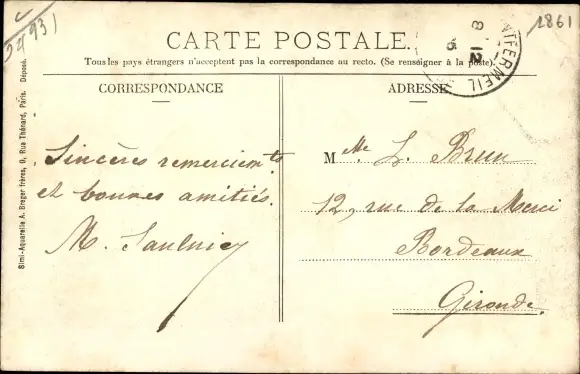 24931
1861
CARTE POSTALE.
Tous les pays étrangers n'acceptent pas la correspondance au recto. (Se renseigner à la poste).
CORRESPONDANCE
ADRESSE
Sincères remerciemts
et bonnes amitiés.
M. Saulnier
Mlle L. Brun
12, rue de la Merci
Bordeaux
Gironde.
8 12
MONTFERMEIL
Simi-Aquarelle A. Breger frères, 9, Rue Thénard, Paris. Déposé.